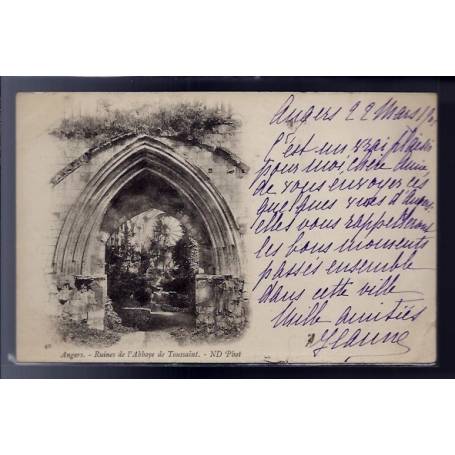 Angers 22 Mars
C'est un vrai plaisir
pour moi, chère amie,
de vous envoyer ces
quelques vues d'Angers,
elles vous rappelleront
les bons moments
passés ensemble
dans cette ville
Mille amitiés
Jeanne
Angers. - Ruines de l'Abbaye de Toussaint. - ND Phot